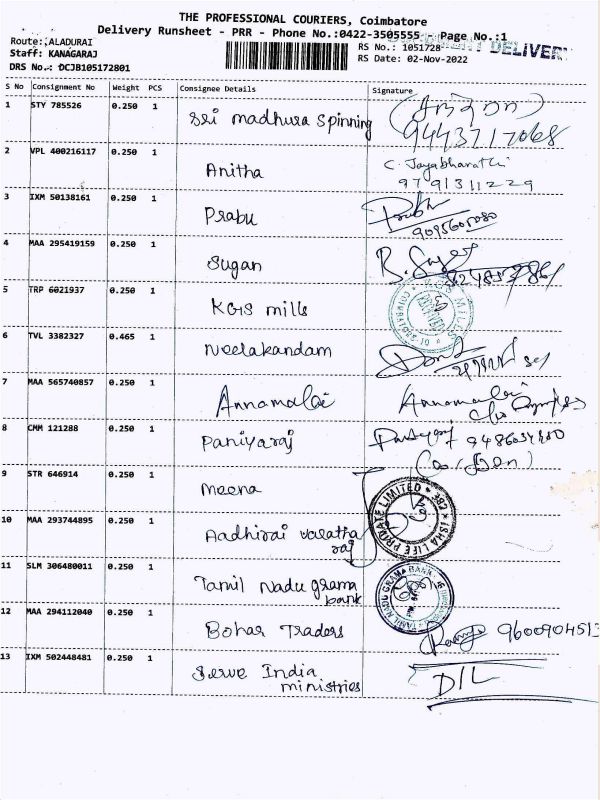 THE PROFESSIONAL COURIERS, Coimbatore
Delivery Runsheet - PRR - Phone No.:0422-3505555 Page No.:1
Route: ALADURAI
RS No.: 1051728
DELIVERY
Staff: KANAGARAJ
RS Date: 02-Nov-2022
DRS No.: DCJB105172801
S No Consignment No Weight PCS Consignee Details Signature
1 STY 785526 0.250 1 Sri madhura Spinning
9443717068
2 VPL 400216117 0.250 1 Anitha C. Jayabharathi
9791311229
3 IXM 50138161 0.250 1 Prabu
4 MAA 295419159 0.250 1 Sugan
5 TRP 6021937 0.250 1 KGIS mills
6 TVL 3382327 0.465 1 Neelakandam
7 MAA 565740857 0.250 1 Annamalai Annamalai
8 CMM 121288 0.250 1 Paniyaraj
9 STR 646914 0.250 1 Meena
ISHA LIFE PRIVATE LIMITED * CBE *
10 MAA 293744895 0.250 1 Aadhirai varatha
raj
11 SLM 306480011 0.250 1 Tamil Nadu grama
bank
TAMIL NADU GRAMA BANK
12 MAA 294112040 0.250 1 Bohar Traders 9600904513
13 IXM 502448481 0.250 1 Serve India
ministries
D/L